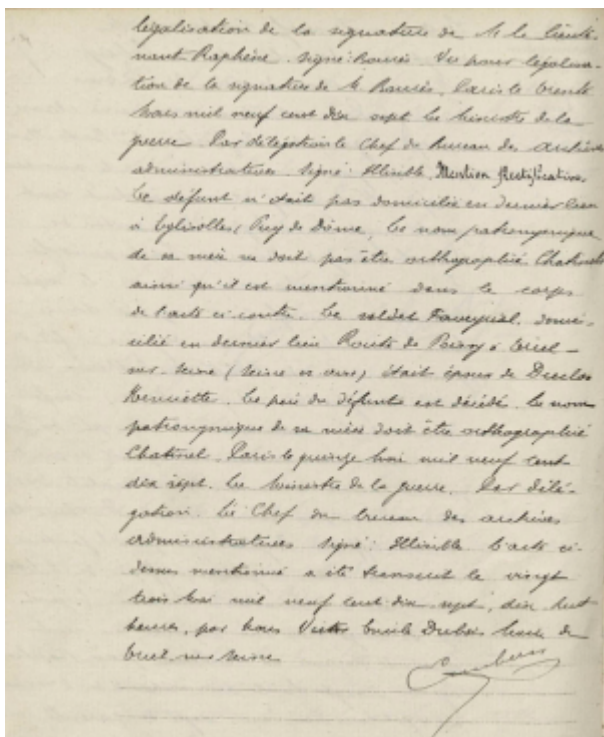 légalisation de la signature de M le lieute-
nant Raphène. signé: Rames. Vu pour légalisa-
tion de la signature de M Rames, Paris le trente
Mars mil neuf cent dix sept Le Ministre de la
guerre Par délégation le Chef de bureau des archives
administratives signé: Illisible. Mention Rectificative.
Le défunt n'était pas domicilié en dernier lieu
à Eglisolles, Puy de Dôme, Le nom patronymique
de sa mère ne doit pas être orthographié
ainsi qu'il est mentionné dans le corps
de l'acte ci-contre. Le soldat domi-
cilié en dernier lieu Route de Poissy à Triel-
sur-Seine (Seine et Oise) était époux de Duclos
Henriette. Le père du défunt est décédé. Le nom
patronymique de sa mère doit être orthographié
Chatinel. Paris le quinze Mai mil neuf cent
dix sept. Le Ministre de la guerre. Par délé-
gation. Le Chef du bureau des archives
administratives signé: Illisible L'acte ci-
dessus mentionné a été transcrit le vingt
trois Mai mil neuf cent dix sept, dix huit
heures, par Nous Victor Emile Dubois Maire de
Triel-sur-Seine